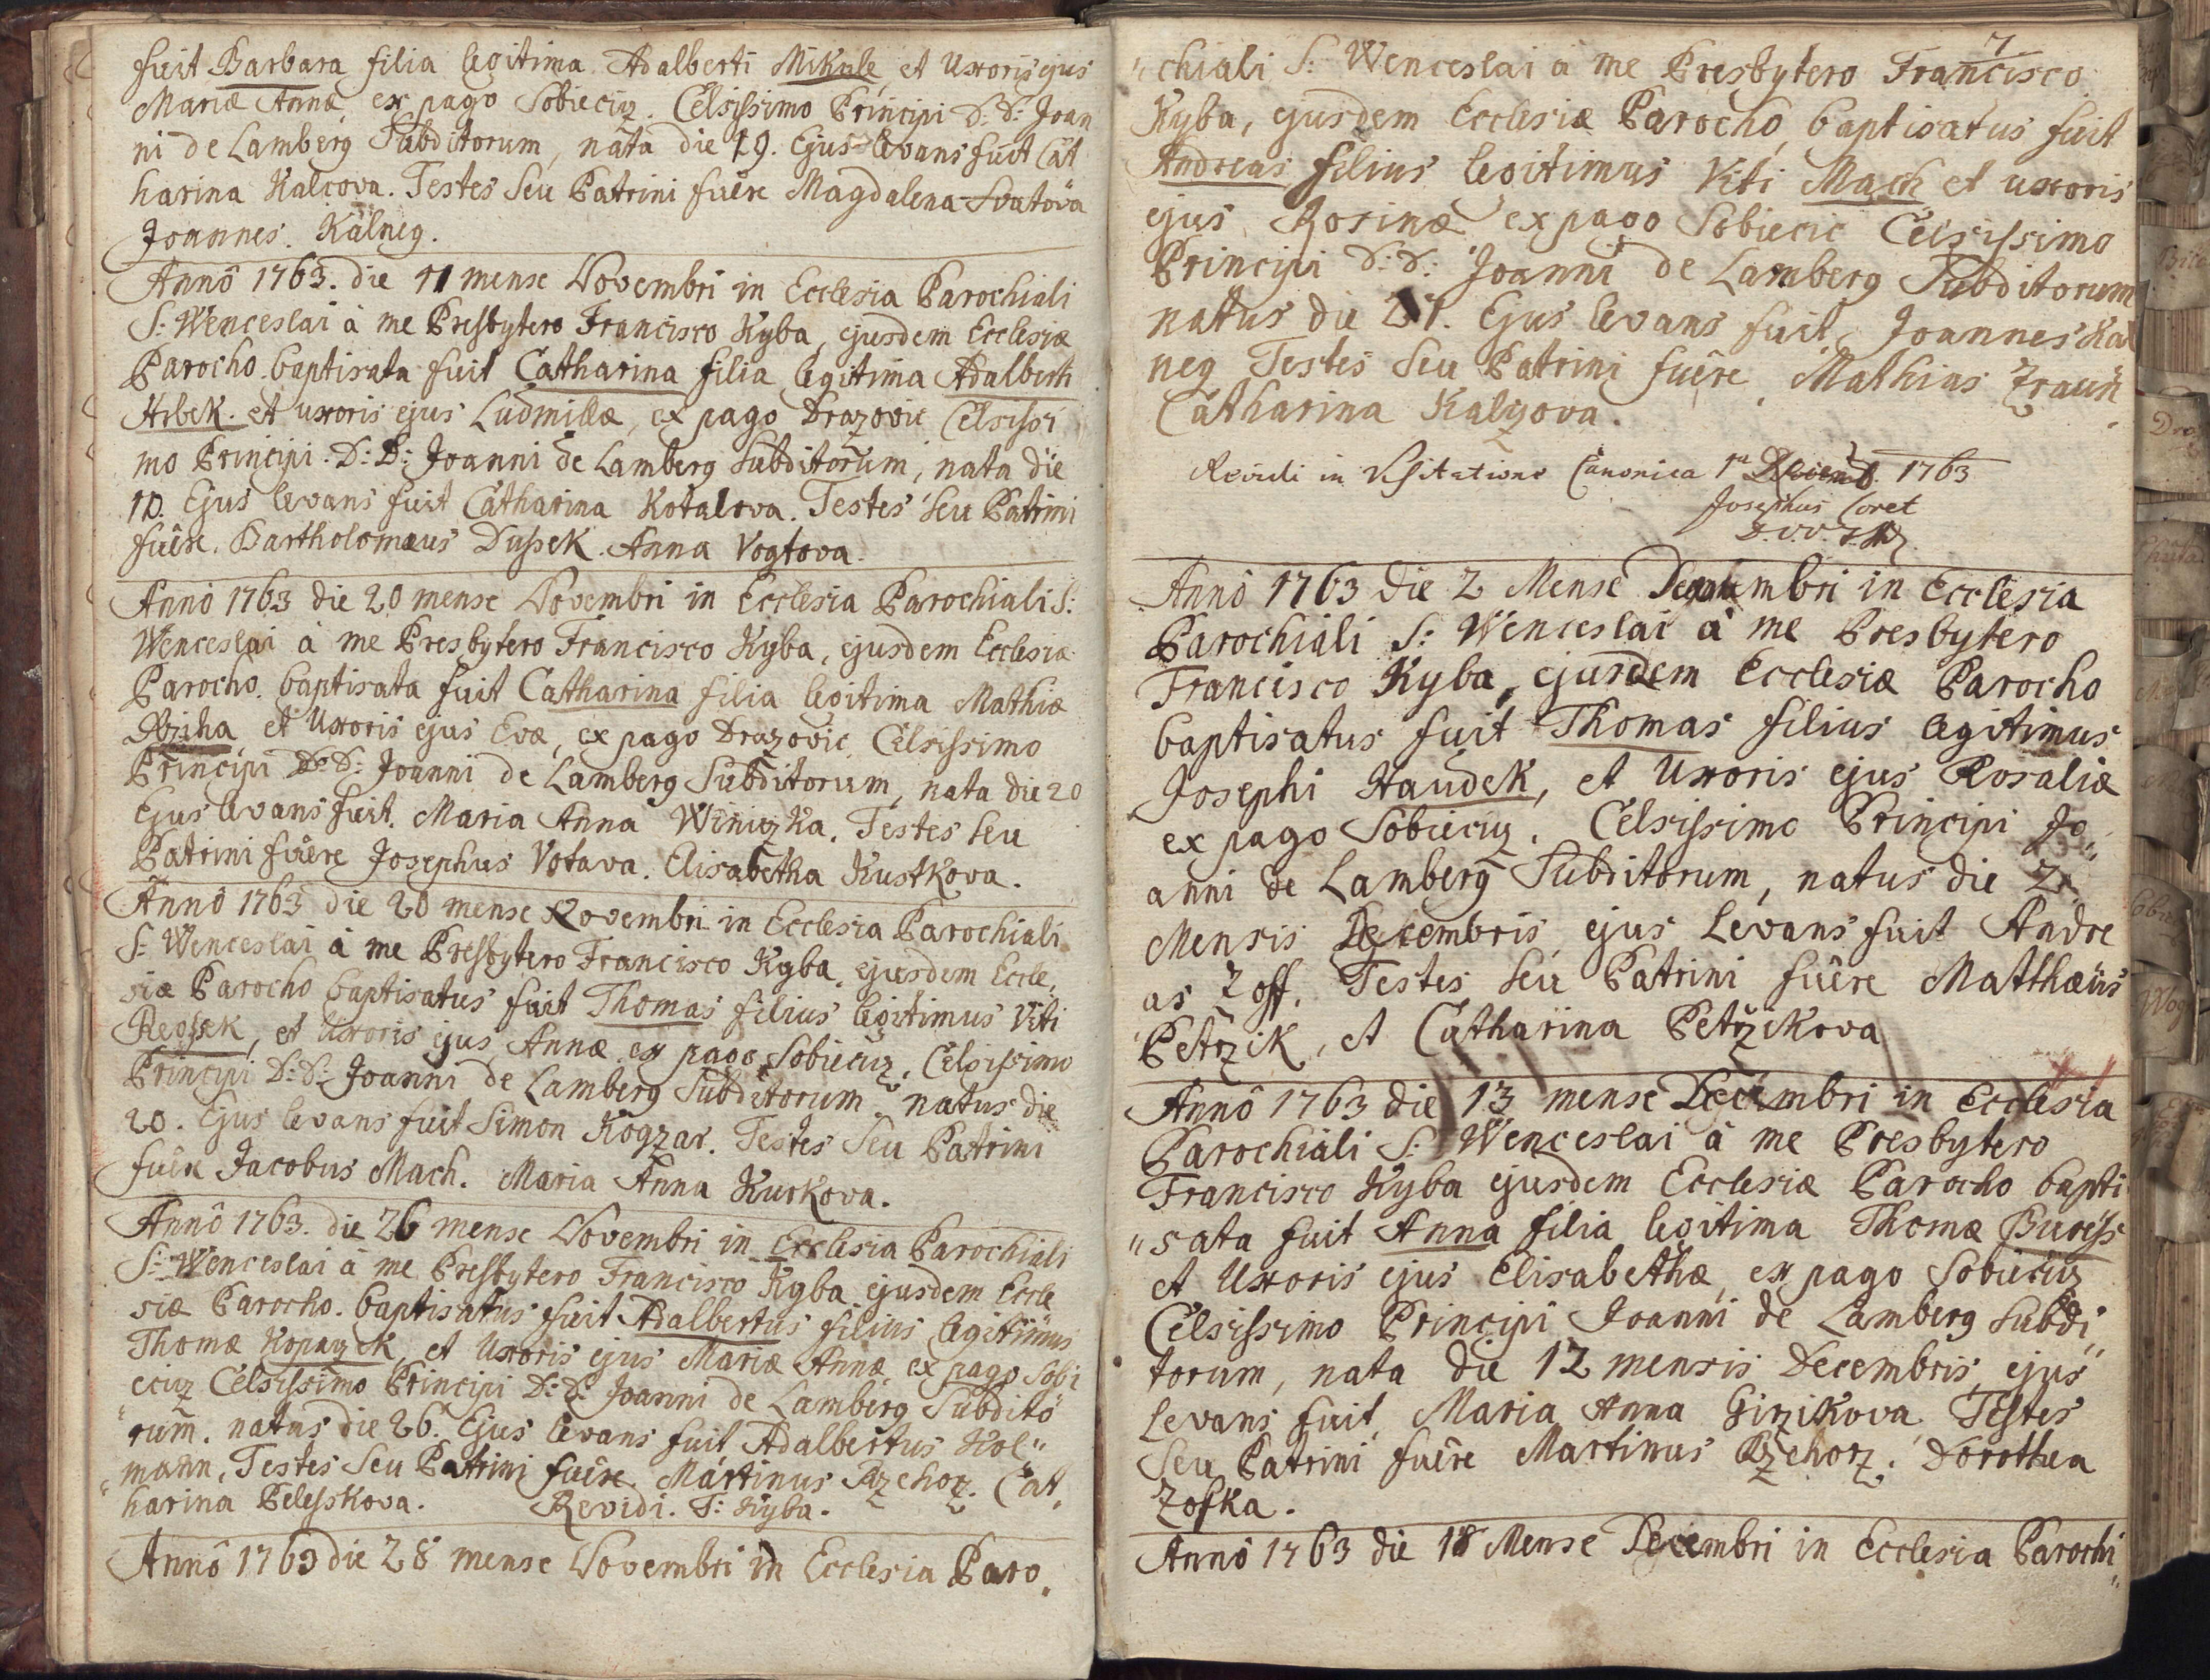 fuit Barbara filia legitima Adalberti Mikule et Uxoris ejus
Mariæ Annæ, ex pago Sobieciz. Celsissimo Principi D: D: Joan
ni de Lamberg Subditorum, nata die 19. Ejus levans fuit Cat
harina Kalcova. Testes Seu Patrini fuêre Magdalena Svatova
Joannes Kalneg.
Annô 1763. die 11 mense Novembri in Ecclesia Parochiali
S: Wenceslai à me Presbytero Francisco Kyba, ejusdem Ecclesiæ
Parocho baptisata fuit Catharina filia legitima Adalberti
Hrbek et uxoris ejus Ludmillæ, ex pago Drazovic Celsissi
mo Principi D: D: Joanni de Lamberg Subditorum, nata die
10. Ejus levans fuit Catharina Kotalova. Testes seu Patrini
fuêre. Bartholomæus Dussek. Anna Vogtova.
Annô 1763 die 20 mense Novembri in Ecclesia Parochiali S:
Wenceslai à me Presbytero Francisco Kyba, ejusdem Ecclesiæ
Parocho baptisata fuit Catharina filia legitima Mathiæ
Rziha et Uxoris ejus Evæ, ex pago Drazovic Celsissimo
Principi D: D: Joanni de Lamberg Subditorum, nata die 20
Ejus levans fuit. Maria Anna Winiczka. Testes seu
Patrini fuêre Josephus Votava. Elisabetha Kustkova.
Annô 1763 die 20 mense Novembri in Ecclesia Parochiali
S: Wenceslai à me Presbytero Francisco Kyba, ejusdem Eccle,
siæ Parocho baptisatus fuit Thomas filius legitimus Viti
Regssek, et Uxoris ejus Annæ ex pago Sobieciz, Celsissimo
Principi D: D: Joanni de Lamberg Subditorum, natus die
20. Ejus levans fuit Simon Kogzar. Testes Seu Patrini
fuêre Jacobus Mach. Maria Anna Kurkova.
Annô 1763. die 26 mense Novembri in Ecclesia Parochiali
S: Wenceslai à me Presbytero Francisco Kyba ejusdem Eccle
siæ Parocho. baptisatus fuit Adalbertus filius legitimus
Thomæ Kopayzek, et Uxoris ejus Mariæ Annæ, ex pago Sobi
eciz Celsissimo Principi D: D: Joanni de Lamberg Subdito"
"rum. natus die 26. Ejus levans fuit Adalbertus Hol"
"mann, Testes Seu Patrini fuêre. Martinus Rzehorz. Cat,
harina Belesskova. Revidi. F: Kyba.
Annô 1763 die 28 mense Novembri in Ecclesia Paro,,
7
"chiali S: Wenceslai à me Presbytero Francisco
Kyba, ejusdem Ecclesiæ Parocho baptisatus fuit
Andreas filius legitimus Viti Mach et uxoris
ejus Rosinæ ex pago Sobiecic Celsissimo
Principi D: D: Joanni de Lamberg Subditorum
natus die 27. Ejus levans fuit Joannes Kal
neg Testes Seu Patrini fuêre, Mathias
Catharina Kalzova.
Revidi in Visitatione Canonica 1a Decemb. 1763
Josephus Coret
Annô 1763 die 2 Mense Decembri in Ecclesia
Parochiali S: Wenceslai à me Presbytero
Francisco Kyba, ejusdem Ecclesiæ Parocho
baptisatus fuit Thomas filius legitimus
Josephi Haudek, et Uxoris ejus Rosaliæ
ex pago Sobieciz. Celsissimo Principi Jo"
anni de Lamberg Subditorum, natus die 2.
Mensis Decembris ejus Levans fuit Andre
as Zoff. Testes Seu Patrini fuêre Matthæus
Petrzik, et Catharina Petrzikova
Annô 1763 die 13 mense Decembri in Ecclesia
Parochiali S: Wenceslai à me Presbytero
Francisco Kyba ejusdem Ecclesiæ Parocho bapti
"sata fuit Anna filia legitima Thomæ Buress
et Uxoris ejus Elisabethæ, ex pago Sobieciz
Celsissimo Principi Joanni de Lamberg Subdi"
torum, nata die 12 mensis Decembris, ejus
Levans fuit, Maria Anna Girzikova, Testes
Seu Patrini fuêre Martinus Rzehorz. Dorothea
Zofka.
Annô 1763 die 18 Mense Decembri in Ecclesia Parochi"